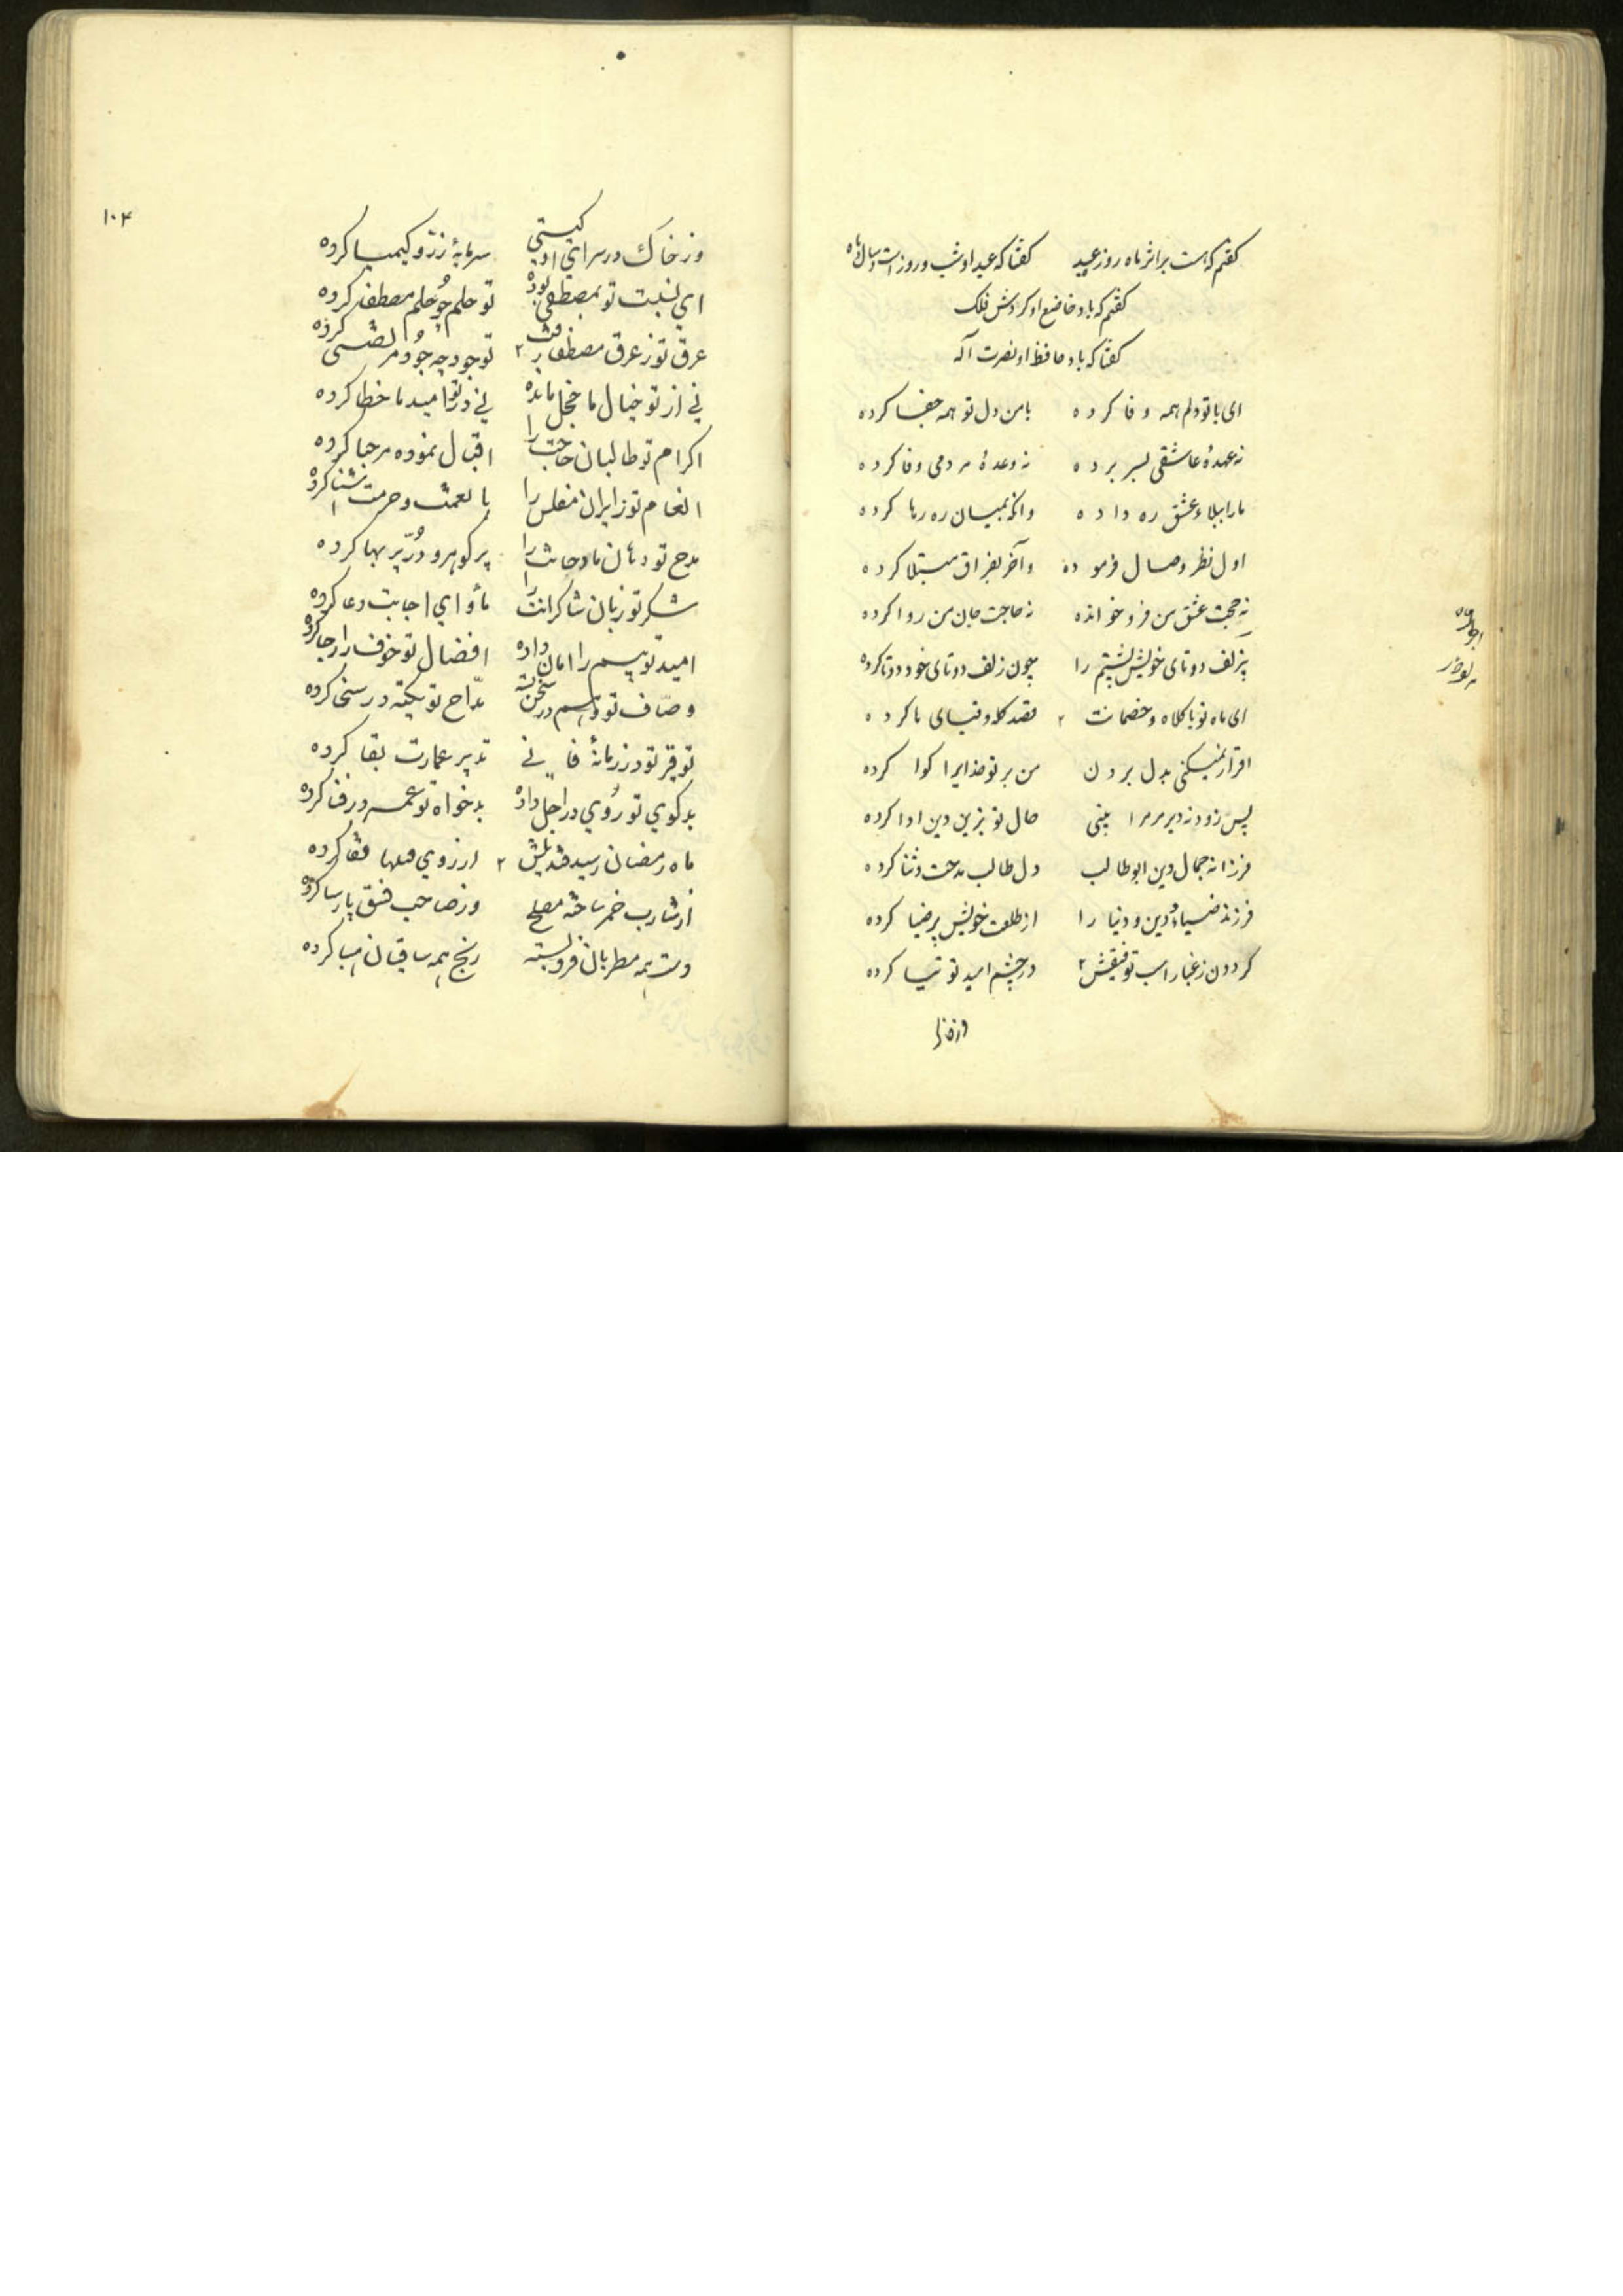 گفتم که هست بر اثر ماه روز عید گفتا که عید او شب و روز است و سال و ماه
گفتم که باد خاضع او گردش فلک
گفتا که باد حافظ او نصرت آله
ای با تو دلم همه وفا کرده با من دل تو همه جفا کرده
نه عهدهٔ عاشقی بسر برده نه وعدهٔ مردمی وفا کرده
ما را ببلاء عشق ره داده وانگه بمیان ره رها کرده
اول نظر وصال فرموده وآخر بفراق مبتلا کرده
نه حجت عشق من فرو خوانده نه حاجت جان من روا کرده
بر زلف دوتای خویش پشتم را چون زلف دوتای خود دوتا کرده
ای ماه تو با کلاه و خصمانت قصد کله و قبای ما کرده
اقرار نمیکنی بدل بردن من بر تو خدایرا گوا کرده
پس زود نه دیر مر مرا بینی حال تو بزین دین ادا کرده
فرزانه جمال دین ابو طالب دل طالب مدحت و ثنا کرده
فرزند ضیاء دین و دنیا را از طلعت خویش پر ضیا کرده
گردون ز غبار اسب توفیقش در چشم امید توتیا کرده
وز خاک
وز خاك در سراي او گیتی سرمایهٔ زر و کیمیا کرده
اي نسبت تو بمصطفی بوده تو حلم چو حلم مصطفی کرده
عرق تو ز عرق مصطفی تو جود چه جود مرتضی کرده
ني از تو خیال ما خجل مانده ني در تو امید ما خطا کرده
اکرام تو طالبان حاجت را اقبال نموده مرحبا کرده
انعام تو زایران مفلس را با نعمت و حرمت آشنا کرده
مدح تو دهان مادحانت را پر گوهر و درّ پر بها کرده
شکر تو زبان شاکرانت را مأواي اجابت دعا کرده
امید تو بیم را امان داده افضال تو خوف را رجا کرده
وصّاف تو در سخن مدّاح تو تکیه در سخی کرده
توقیر تو در زمانهٔ فاني تدبیر عمارت بقا کرده
بدگوي تو روي در اجل داده بدخواه تو عمر در فنا کرده
ماه رمضان رسید ارزوي کرده
از شارب خمر ساخته مصلح وز صاحب فسق پارسا کرده
دست همه مطربان فرو بسته رنج همه ساقیان هبا کرده
۱۰۴